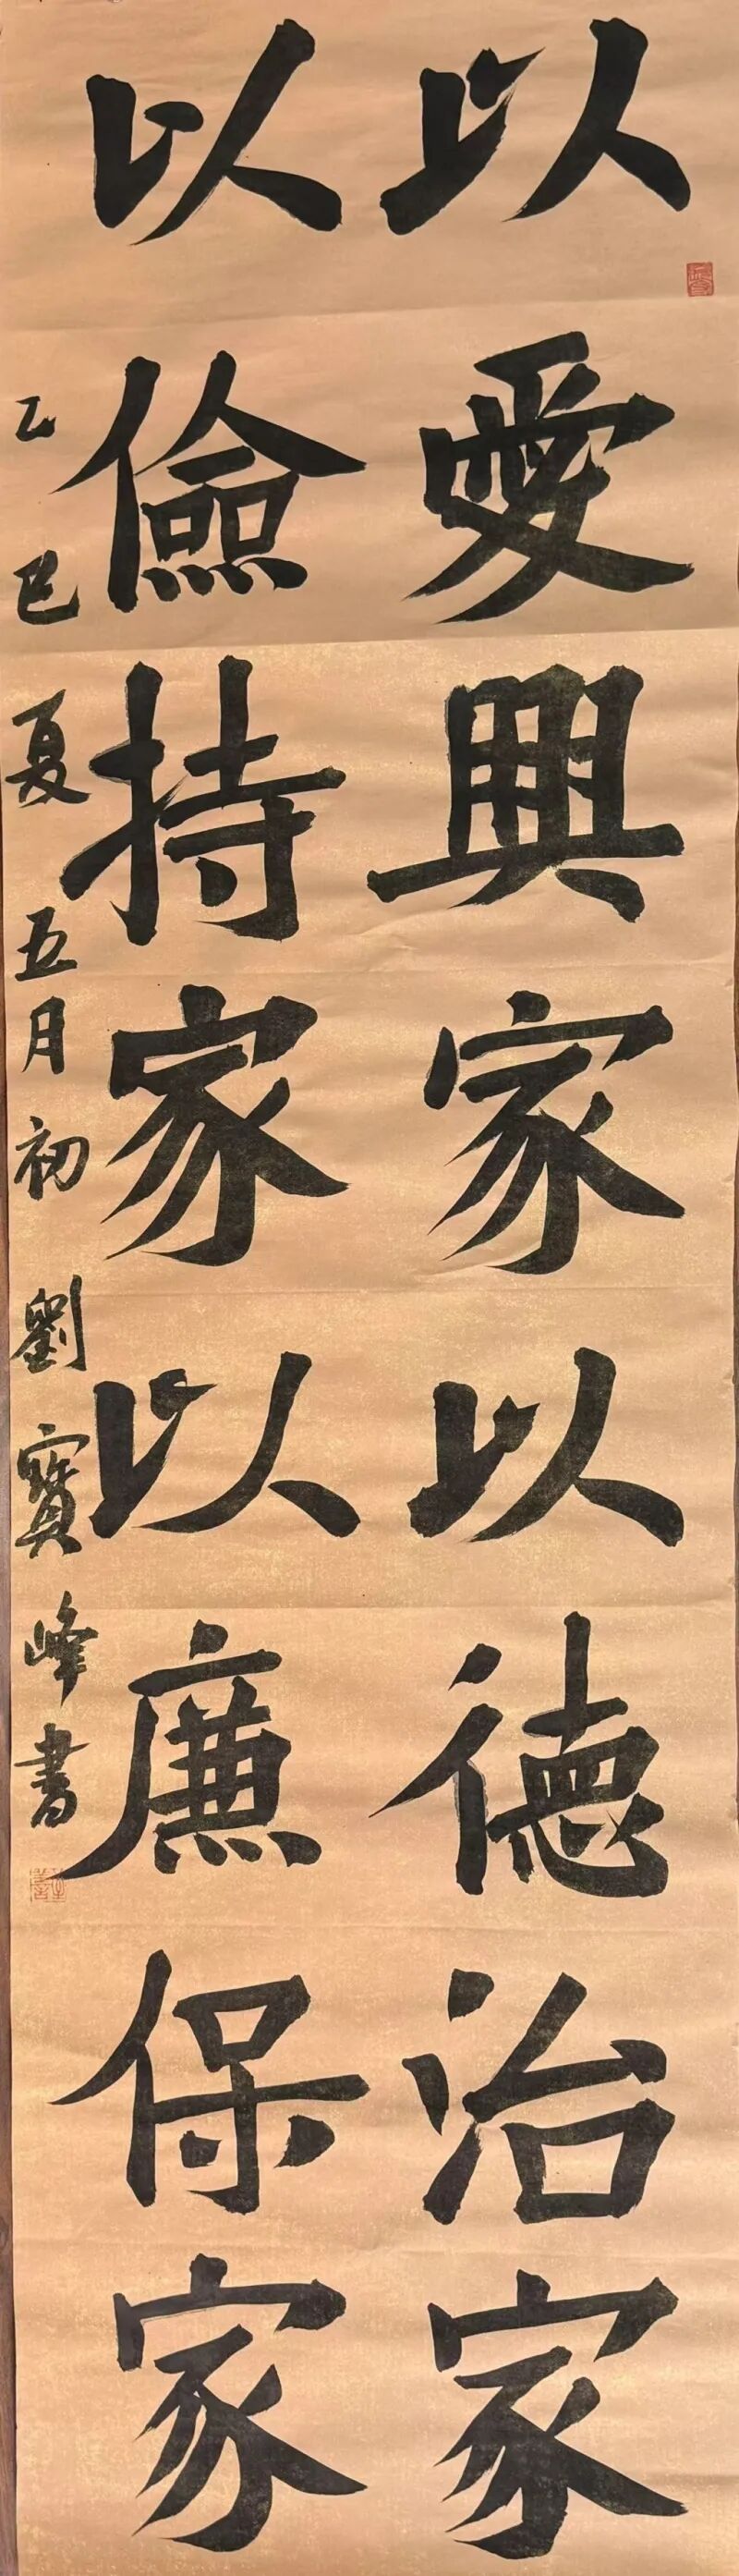 以愛興家以德治家
以儉持家以廉保家
乙巳夏五月初劉寶峰書